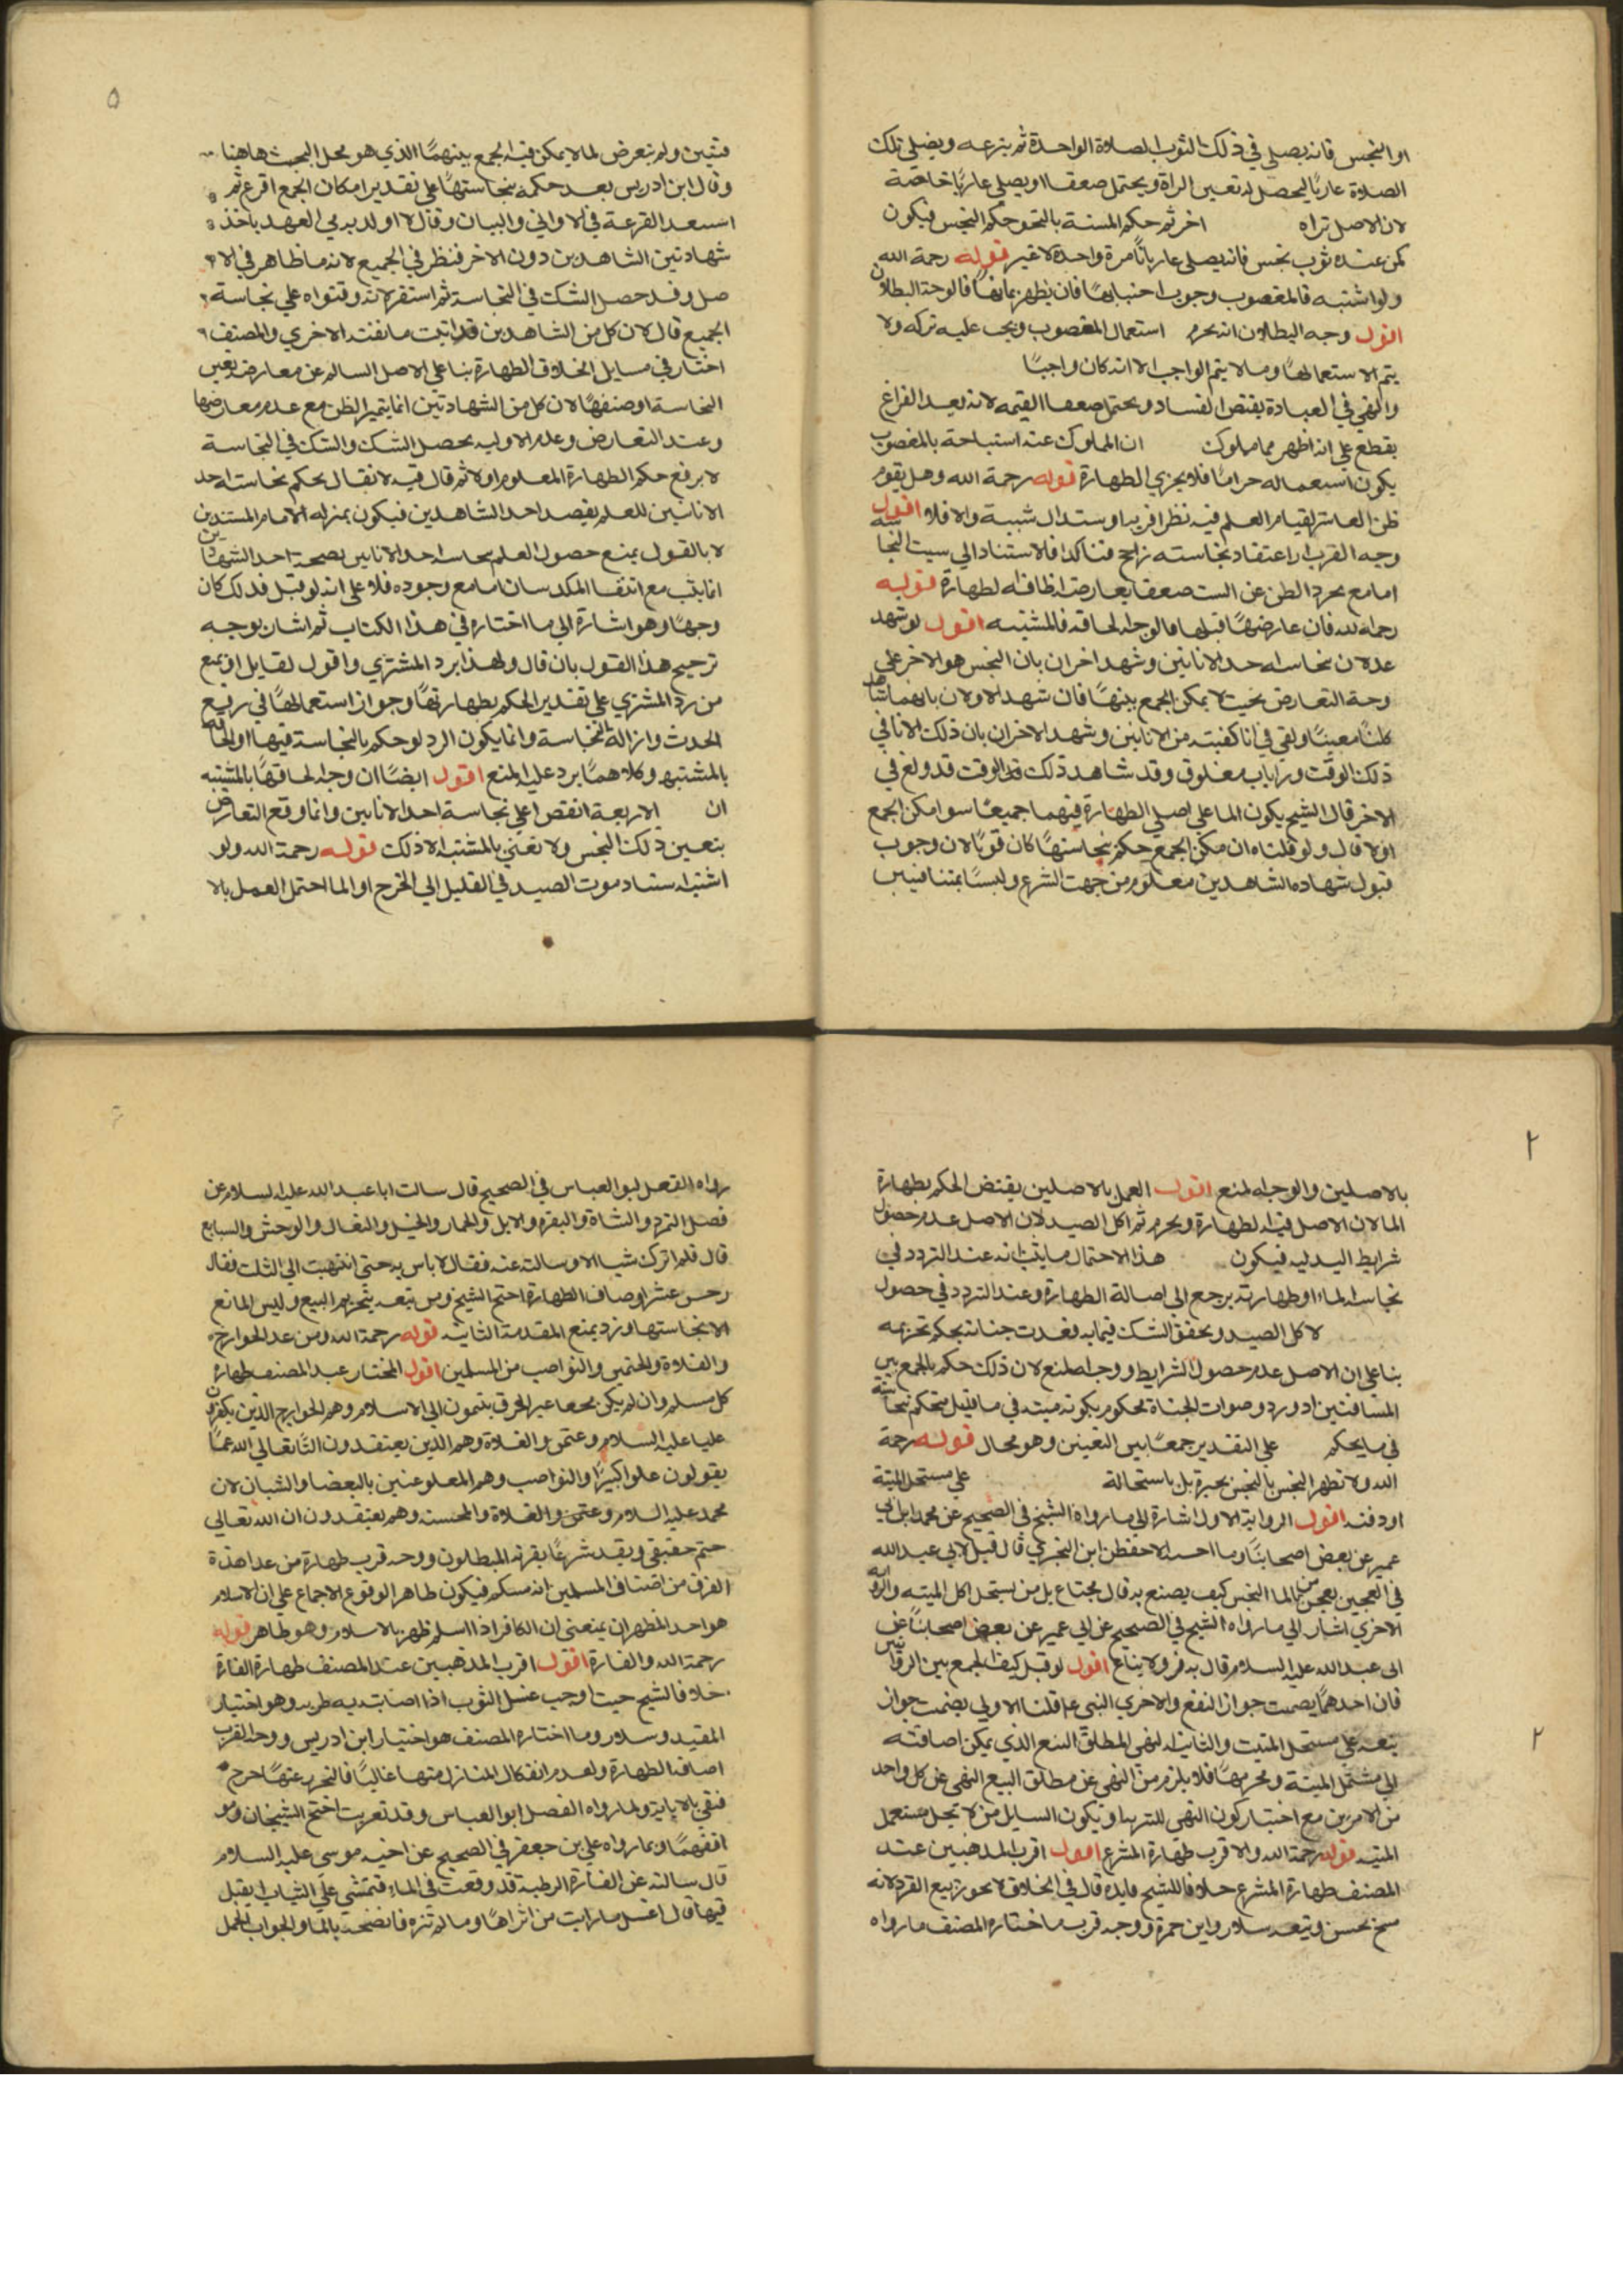 او النجس فانه يصلي في ذلك الثوب الصلاة الواحدة ثم ينزعه ويصلي تلك
الصلاة عاريا ليحصل له تعيين الراة ويحتمل صعفا او يصلي عاريا خاصة
لان الاصل تراه اخر ثم حكم المسنة بالتحو حكم النجس فيكون
كمن عنده ثوب نجس فانه يصلي عاريا مرة واحدة لا غير قوله رحمة الله
ولو اشتبه فالمغصوب وجوب اجتنابهما فان تطهر بهما فالوجه البطلان
اقول وجه البطلان انه يحرم استعمال المغصوب ويجب عليه تركه ولا
يتم الا ستعمالهما وما لا يتم الواجب الا انه كان واجبا
والنهي في العبادة يقتض الفساد ويحتمل صعفا القيمه لانه بعد الفراغ
يقطع علي انه اظهر مما مملوك ان المملوك عند استباحة بالمغصوب
يكون استعماله حراما فلا يجزي الطهارة قوله رحمة الله وهل يقوم
ظن العاشر لقيام العلم فيه نظر اقربه او ستدال شبية والا فلا اقول
وجه القرب ان اعتقاد نجاسته راجح فتاكدا فلاستناد الي سبب النجا سه
اما مع مجرد الظن عن السبب صعفا يعارضه اظافه لطهارة قوله
رحمة الله فان عارضهما قبلهما فالوجه الحاقه فالمشتبه اقول لو شهد
عدلان نجاسة احد الانانين وشهد اخران بان النجس هو الاخر علي
وجه التعارض بحيث لا يمكن الجمع بينهما فان شهد الاولان بانهما شاهد
كلبا معينا ولغ في انا كفيته من الانانين وشهد الاخران بان ذلك الانا في
ذلك الوقت وراباب مغلوق وقد شاهد ذلك في الوقت قد ولغ في
الاخر قال الشيخ يكون الما علي اصل الطهارة فيهما جميعا سوا مكن الجمع
اولا قال ولو قلناه ان مكن الجمع حكم بنجاستهما كان قويا لان وجوب
قبول شهادة الشاهدين معلوم من جهت الشرع وليسا بمتنا فيين
٥
فتيين ولم تعرض لما لا يمكن فيه الجمع بينهما الذي هو محل البحث هاهنا
وقال ابن ادريس بعد حكمه بنجاستهما علي تقدير امكان الجمع اقرع ثم
استبعد القرعة في الاواني والبيان وقال لا اولد يد من العهد باخذ
شهادتين الشاهدين دون الاخر فنظر في الجميع لانه ما طاهر في الا
صل وقد حصل الشك في النجاسة ثم استقر لانه وقتواه علي نجاسة
الجميع قال لان كل من الشاهدين قد اثبت ما نفته الاخري والمصنف
اختار في مسايل الخلاف الطهارة بنا علي الاصل السالم عن معارضة يعين
النجاسة او صنفهما لان كل من الشهادتين انما يتميز الظن مع عدم معارضها
وعند التعارض وعدم الاوليه يحصل الشك والشك في النجاسة
لا يرفع حكم الطهارة المعلوم اولا ثم قال فيه لا نقال يحكم نجاسته احد
الانانين للعلم بقصد احد الشاهدين فيكون بمنزله الامام المستندين
لا بالقول يمنع حصول العلم بنجاسة احد الانانين بصحة احد الشهاد تين
انما يثب مع انتفا المكد سان اما مع وجوده فلا علي انه لو قبل فذلك كان
وجها وهو اشارة الي ما اختاره في هذا الكتاب ثم اشان بوجه
ترجيح هذا القول بان قال ولهذا يرد المشتري واقول لقايل ان يمنع
من رد المشتري علي تقدير الحكم بطهارتهما وجواز استعمالهما في رفع
الحدث وازالة النجاسة وانما يكون الرد لو حكم بالنجاسة فيهما او الحاقه
بالمشتبه وكلاهما يرد عليه المنع اقول ايضا ان وجه لحاقهما بالمشتبه
ان الاربعة انقص اعلي نجاسة احد الانانين وانما وقع التعارض
بتعين ذلك النجس ولا تغني بالمشتبه الا ذلك قوله رحمة الله ولو
اشتبه استناد موت الصيد في القليل الي الجرح او الما احتمل العمل بالا
٢
بالاصلين والوجه المنع اقول العمل بالاصلين يقتض الحكم بطهارة
الما لان الاصل فيه لطهارة ويحرم ثم اكل الصيد لان الاصل عدم حصول
شرايط اليدليه فيكون هذا الاحتمال ما يثبت انه عند التردد في
نجاسة الماء او طهارته يرجع الي اصالة الطهارة وعند التردد في حصول
لا كل الصيد وتحقق الشك فيما به فغدت جنانه بحكم تحريمه
بنا علي ان الاصل عدم حصول الشرايط ووجه المنع لان ذلك حكم بالجمع بين
المتنافيتين اد ورد وصوات الجناة محكوم بكونه ميته في ما قيل متحكم نجاسته
في ما يحكم علي التقدير جمعا بين التعينين وهو محال قوله رحمة
الله ولا تطهر النجس بالنجس بحيرة بل باستحالة علي مستحل الميتة
او دفنه اقول الرواية الاول اشارة الي ما رواه الشيخ في الصحيح عن محمد ابن ابي
عمير عن بعض اصحابنا وما احسبه الا حفص ابن البختري قال قيل لابي عبد الله
في العجين يعجن من الما النجس كيف يصنع به قال يحتاع بل من يستحل اكل الميته والروايه
الاخري اشار الي ما رواه الشيخ في الصحيح عن ابي عمير عن بعض اصحابنا عن
ابي عبد الله عليه السلام قال يدفن ولا يباع اقول لو قبل كيف الجمع بين الروايتين
فان احدهما يضمت جواز النفع والاخري النهي عا قلنا الاولي يضمت جواز
بيعه علي مستحل الميتت والثانية النهي المطلق البيع الذي يمكن اضافته
الي مستحل الميتة ومحرمها فلا يلزم من النهي عن مطلق البيع النهي عن كل واحد
من الامرين مع اختبار كون النهي للتنزيه او تكون السايل من لا يحل مستعمل
الميته قوله رحمة الله والاقرب طهارة المشرع اقول اقرب المذهبين عند
المصنف طهارة المشرع خلافا للشيخ فايده قال في الخلاف لا يجوز بيع القرد لانه
مسخ نجس وتبعه سلار وابن حمزة ووجه قرب ما اختاره المصنف ما رواه
٢
رواه الفضل ابو العباس في الصحيح قال سالت ابا عبد الله عليه السلام عن
فضل الترد والشاة والبقره والابل والحمار والخيل والبغال والوحش والسابع
قال فلم اترك شيا الا وسالته عنه فقال لا باس به حتي انتهيت الي الثلت فقال
رحس عشر اوصاف الطهارة احتج الشيخ ومن تبعه بتحريم البيع وليس المانع
الا نجاستها ورد بمنع المقدمة الثانية قوله رحمة الله ومن عدا الخوارج
والغلاة والمجتمي والنواصب من المسلمين اقول المختار عند المصنف طهارة
كل مسلم وان لم يكن محقا عير الفرق ينتمون الي الاسلام وهم الخوارج الذين يكفرون
عليا عليه السلام وعتمن والغلاة وهم الدين يعتقدون اللا تعالي الله عما
يقولون علوا كبيرا والنواصب وهم المعلوعنين بالبعضا والشبان لان
محمد عليه السلام وعتمن والغلاة والمحسنه وهم يعتقدون ان الله تعالي
جسم حقيقي ويقد شرعا بقرنه المبطلون ووجه قرب طهارة من عدا هذه
الفرق من اصناف المسلمين انه مسلم فيكون طاهر الوقوع الاجماع علي ان الاسلام
هو احد المطهران بمنعني ان الكافر اذا اسلم طهر بالاسلام وهو ظاهر قوله
رحمة الله والفارة اقول اقرب المذهبين عند المصنف طهارة الفارة
خلافا لشيخ حيث اوجب غسل الثوب اذا اصابته يه طريه وهو اختيار
المفيد وسلار وما اختاره المصنف هو اختيار ابن ادريس ووجه القرب
اصاله الطهارة ولعدم انفكال المنازل منها غاليا فالتحرر عنها حرج
فنفي بالاية ولما رواه الفضل ابو العباس وقد تعريت احتج الشيخان ومو
افقهما وبما رواه علي بن جعفر في الصحيح عن اخيه موسى عليه السلام
قال سالته عن الفارة الرطبه قد وقعت في الماء فتمشي علي الثياب ايقبل
فيها قال اغسل ما رايت من اثراها وما لم تنزه فانضحه بالما والجواب الحمل